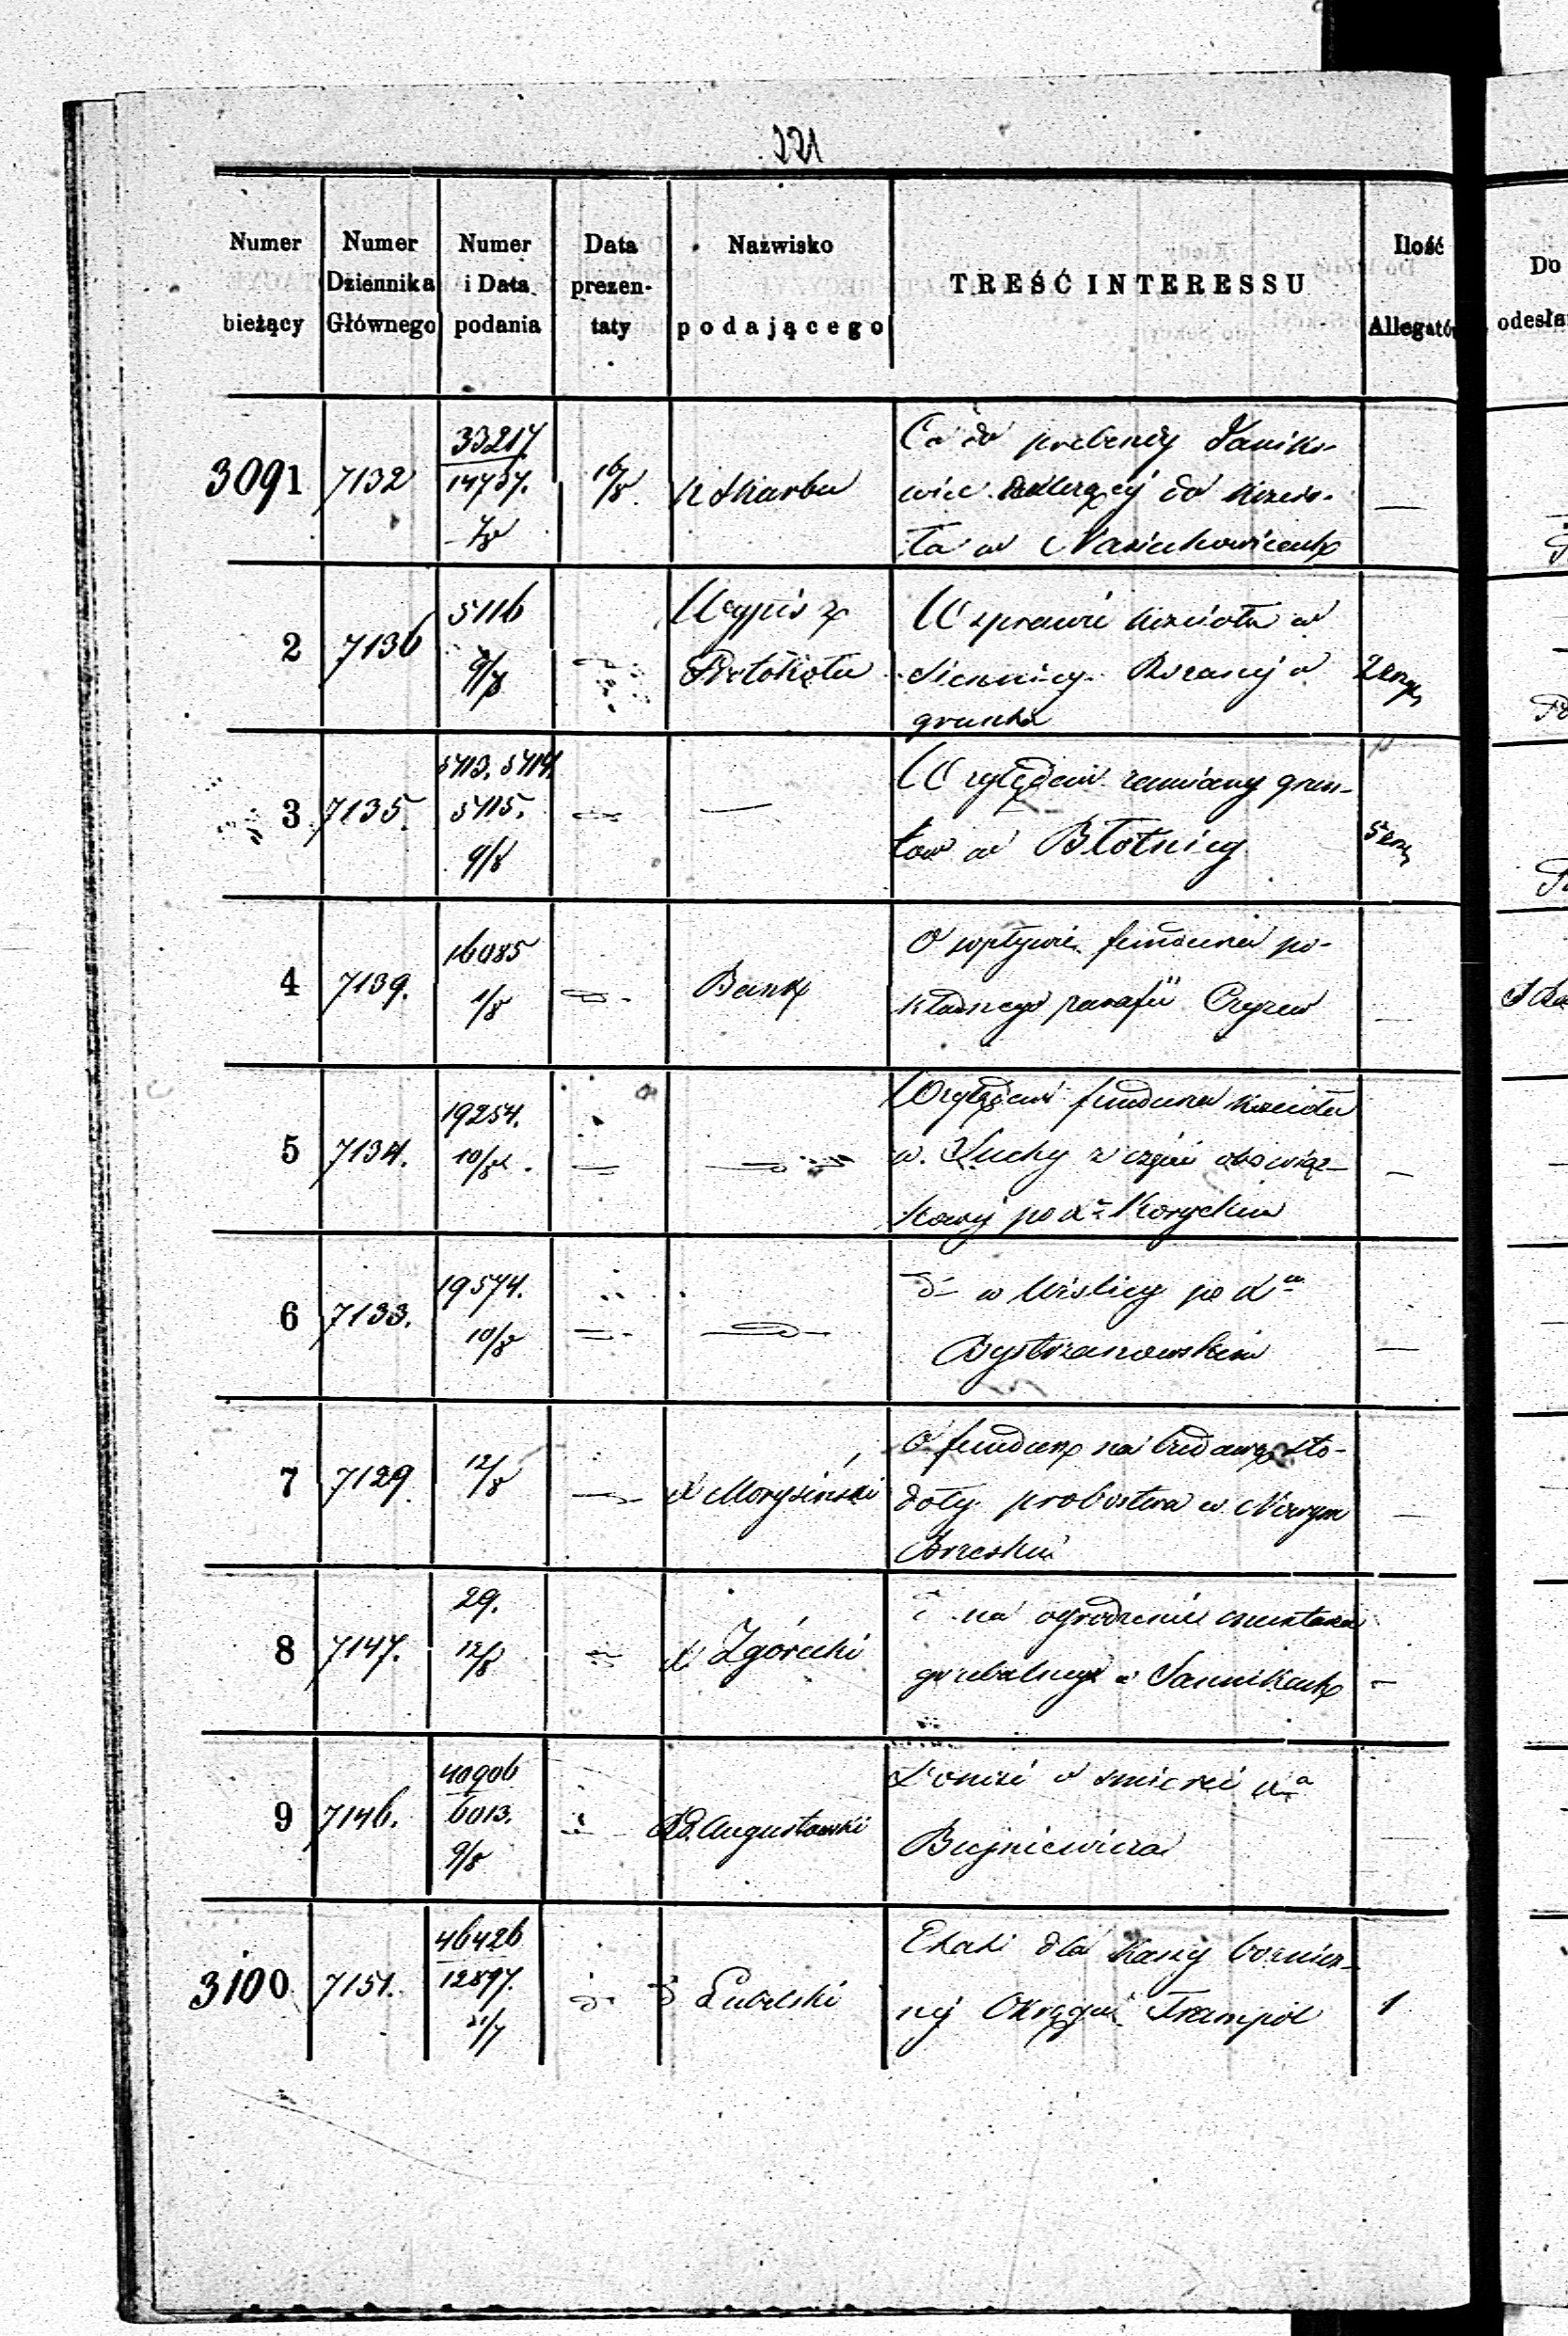 221
Numer bieżący | Numer Dziennika Głównego | Numer i Data podania | Data prezentaty | Nazwisko podającego | TREŚĆ INTERESSU | Ilość Allegatów
Do
odesła
3091 7132 33217/14737. 16/8 K Skarbu
Co do prebendy Janiko-
wice należącej do Kościo-
ła w
2 7136 5116 9/8
Wypis z
Protokołu
W sprawie Kościoła w
Siennicy Różanej o
grunta
3 7135. 5713. 5714. 5715. 9/8 —
Względem zamiany grun-
tów w Błotnicy
4 7139. 16085 1/8 Bank
O wpływie funduszu po-
kładnego parafii Czyżew
5 7134. 19254. 10/8
Względem funduszu Kościoła
w Suchy z części obowiąz-
kowej po Xs Koryckim
6 7133. 19574. 10/8
d° w Wiślicy po Xu
Bystrzanowskim
7 7129 12/8 X Morysiński
O fundusz na budowę sto-
doły probostwa w Nowym
Brzesku
8 7147. 29. 12/8 X Zgórecki
na ogrodzenie cmentarza
grzebalnego w Sannikach
9 7146. 40906/6013. 9/8 Augustowski
Donosi o śmierci Xa
Bujniewicza
3100 7151. 46426/12897. 21/7 Lubelski
Etat dla Kassy bożnicz-
nej Okręgu Frampol 1